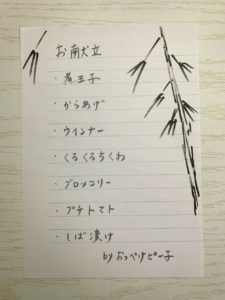 お献立
・煮玉子
・からあげ
・ウインナー
・くるくるちくわ
・ブロッコリー
・プチトマト
・しば漬け
by おっぺけピー子